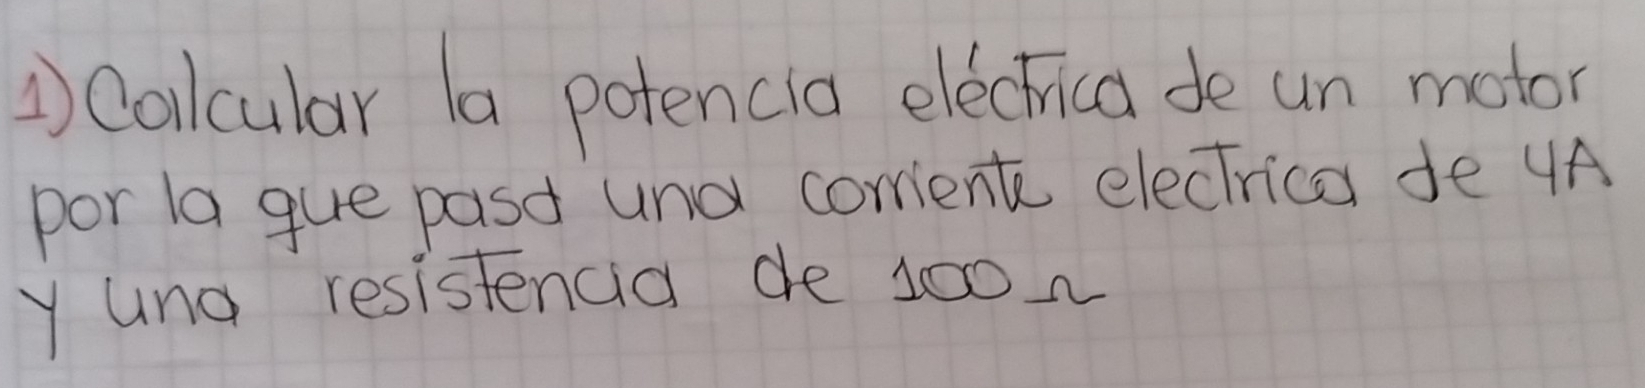 1) Calcular la potencia eléctrica de un motor
por la que pasa una corriente electrica de 4A
y una resistencia de 100 Ω